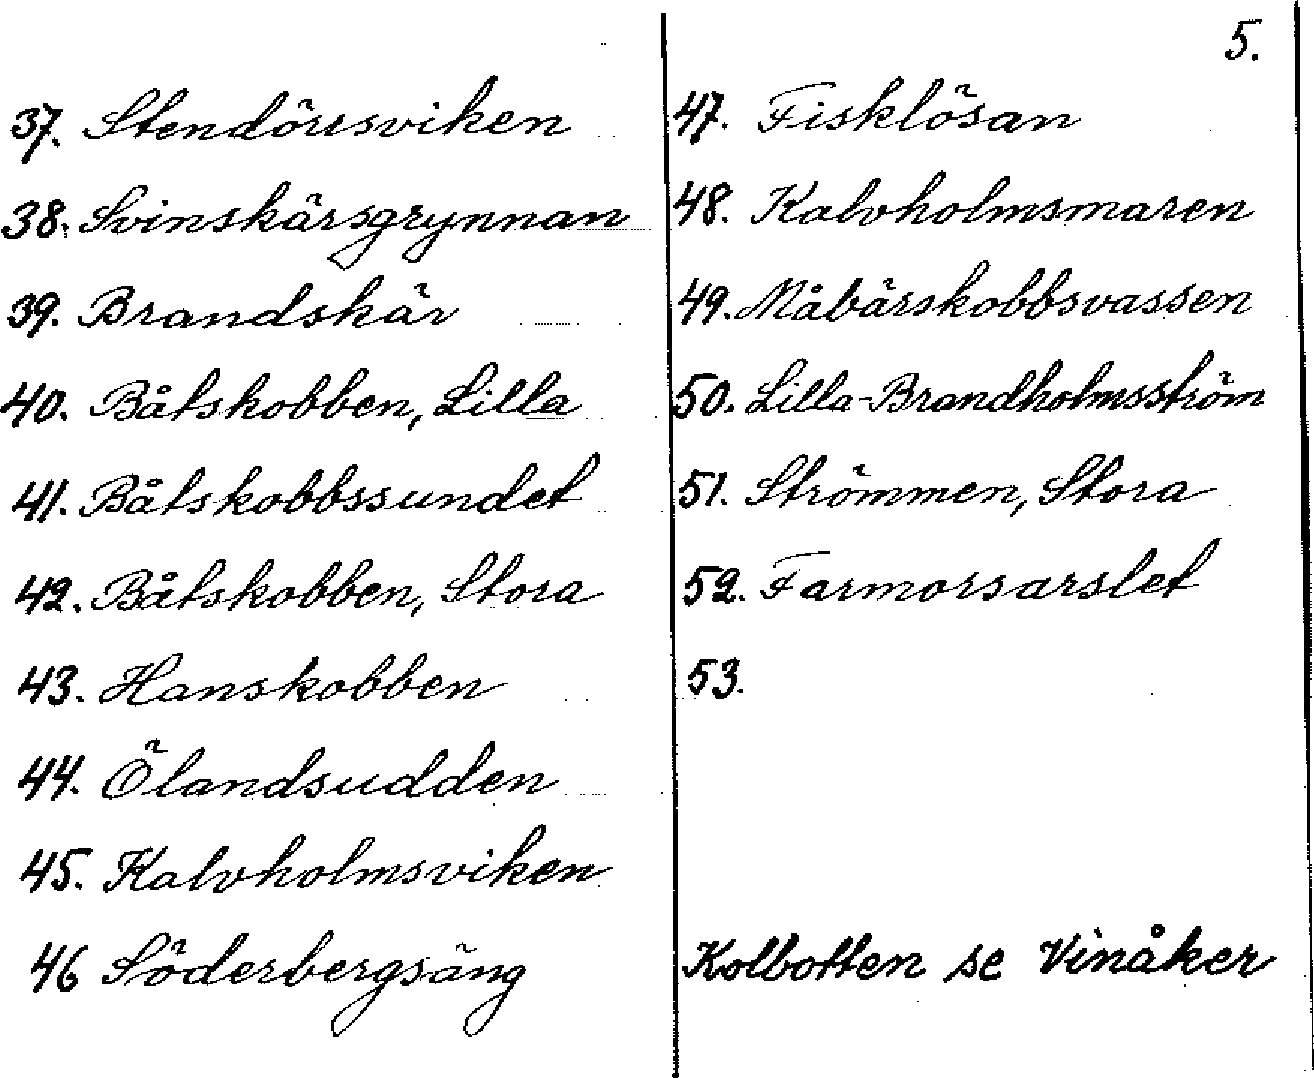 5.
37. Stendörsviken
38. Svinskärsgrynnan
39. Brandskär
40. Båtskobben, Lilla
41. Båtskobbssundet
42. Båtskobben, Stora
43. Hanskobben
44. Ölandsudden
45. Kalvholmsviken
46 Söderbergsäng
47. Fisklösan
48. Kalvholmsmaren
49. Måbärskobbsvassen
50. Lilla-Brandholmsström
51. Strömmen, Stora
52. Farmorsarslet
53.
Kolbotten se Vinåker